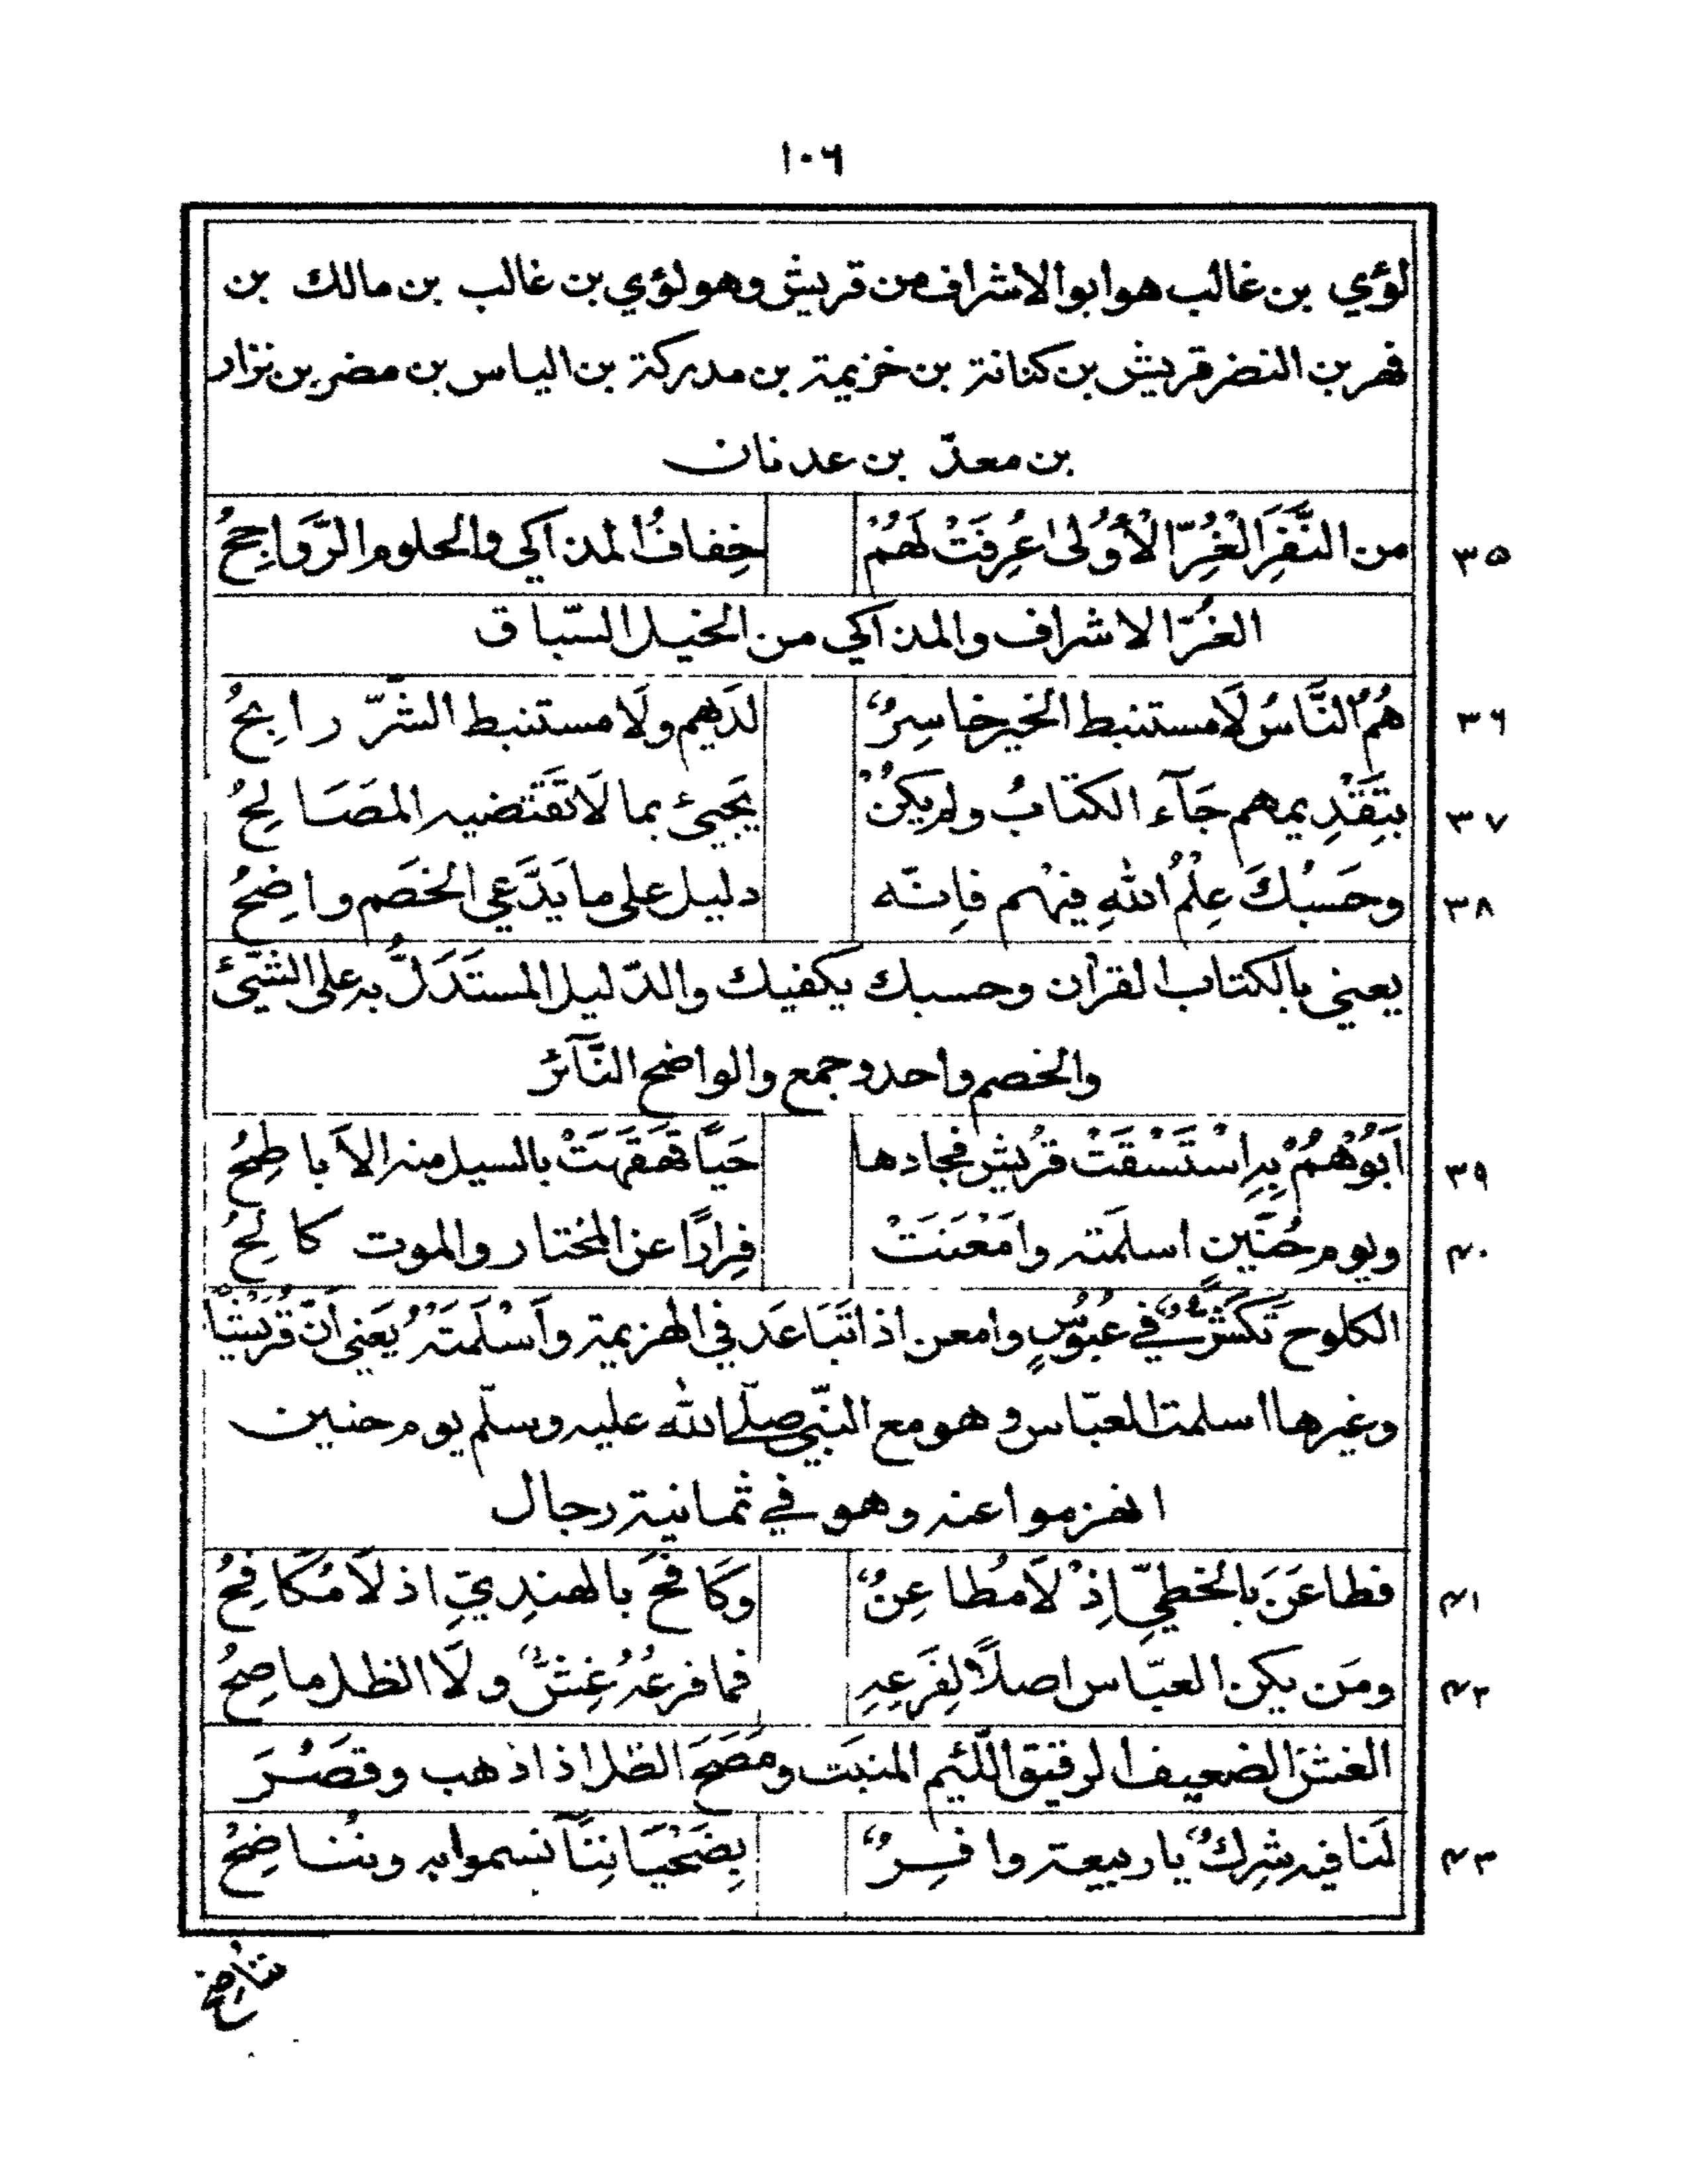 ١٠٦
لؤي بن غالب هو ابو الاشراف من قريش وهو لؤي بن غالب بن مالك بن
فهر بن النضر قريش بن كنانة بن خزيمة بن مدركة بن الياس بن مضر بن نزار
بن معدّ بن عدنان
٣٥ من النَّفَرِ الْغُرِّ الْأُولى عُرِفَتْ لَهُمْ خِفافُ المذاكي والحلوم الرَّوَاجِحُ
الغُرّ الاشراف والمذاكي من الخيل السّباق
٣٦ هُمُ النَّاسُ لَا مستنبط الخير خاسِرٌ لدَيهم ولَا مستنبط الشرّ رابِحُ
٣٧ بتَقْدِيمهم جَآء الكتابُ ولم يكنْ يَجيئ بما لَا تَقْتضيه المصَالِحُ
٣٨ وحَسْبُكَ عِلْمُ اللهِ فيهم فاِنّه دليل على ما يَدَّعي الخصَم واضِحُ
يعني بالكتاب القرآن وحسبك يكفيك والدّليل المستَدَلُّ به على الشّيئ
والخصم واحد وجمع والواضح النَّآئر
٣٩ اَبُوْهُمْ بِهِ اسْتَسْقَتْ قرُيش فجادها حَيًّا قَهقَهَتْ بالسيل منه الاَباطِحُ
٤٠ ويوم حُنَين اسلمَته وامَعْنَتْ فِرارًا عن المختار والموت كالِحُ
الكلوح تَكَشُّرٌ في عبُوُسٍ وامعن اذا تَبَاعَد في الهزيمة وأسْلَمَتْهُ يَعَني اَنّ قُرَيْشًا
وغيرها اسلمت العبّاس وهو مع النبّي صلّى الله عليه وسلّم يوم حنين
انهزموا عنه وهو في ثمانية رجال
٤١ فطاعَنَ بالخطيِّ اِذْ لَا مُطاعِنٌ وكَافحَ بالهندِيِّ اذ لَا مُكَافِحُ
٤٢ ومَن يكن العبّاس اصلًا لِفَرعِهِ فما فرعُهُ غِشٌّ ولَا الظل ماصِحُ
الغشّ الضعيف الرقيق اللّئيم المنبَت ومَصَحَ الظل اذا ذهب وقصُرَ
٤٣ لَنا فيه شِركٌ يا ربيعة وافِرٌ بِضَحْيَانِنَا نسموا به ونُناضِحُ